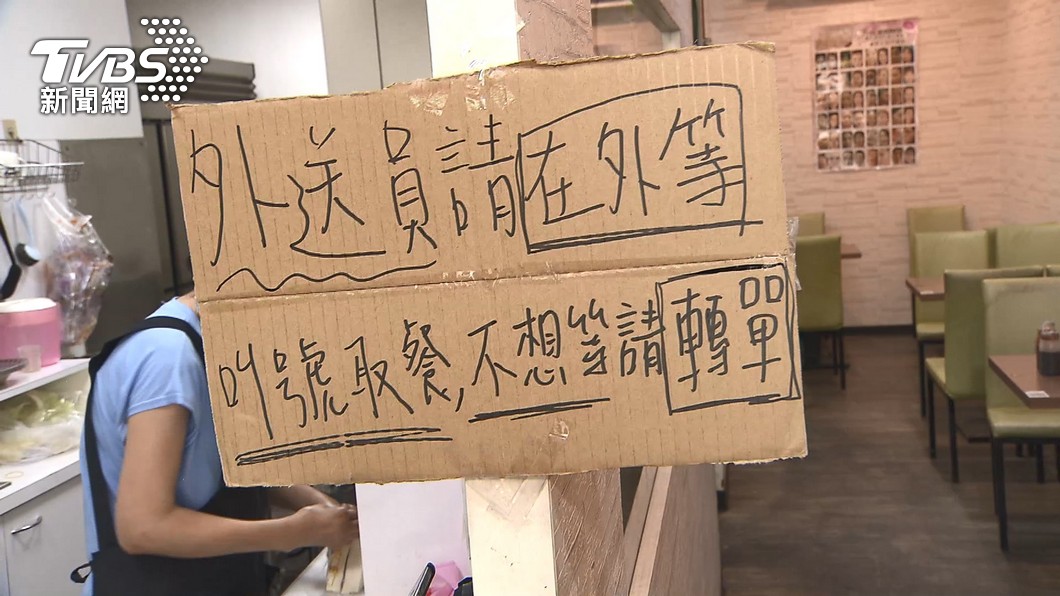 TVBS
新聞網
外送員請在外等
叫號取餐,不想等請轉單